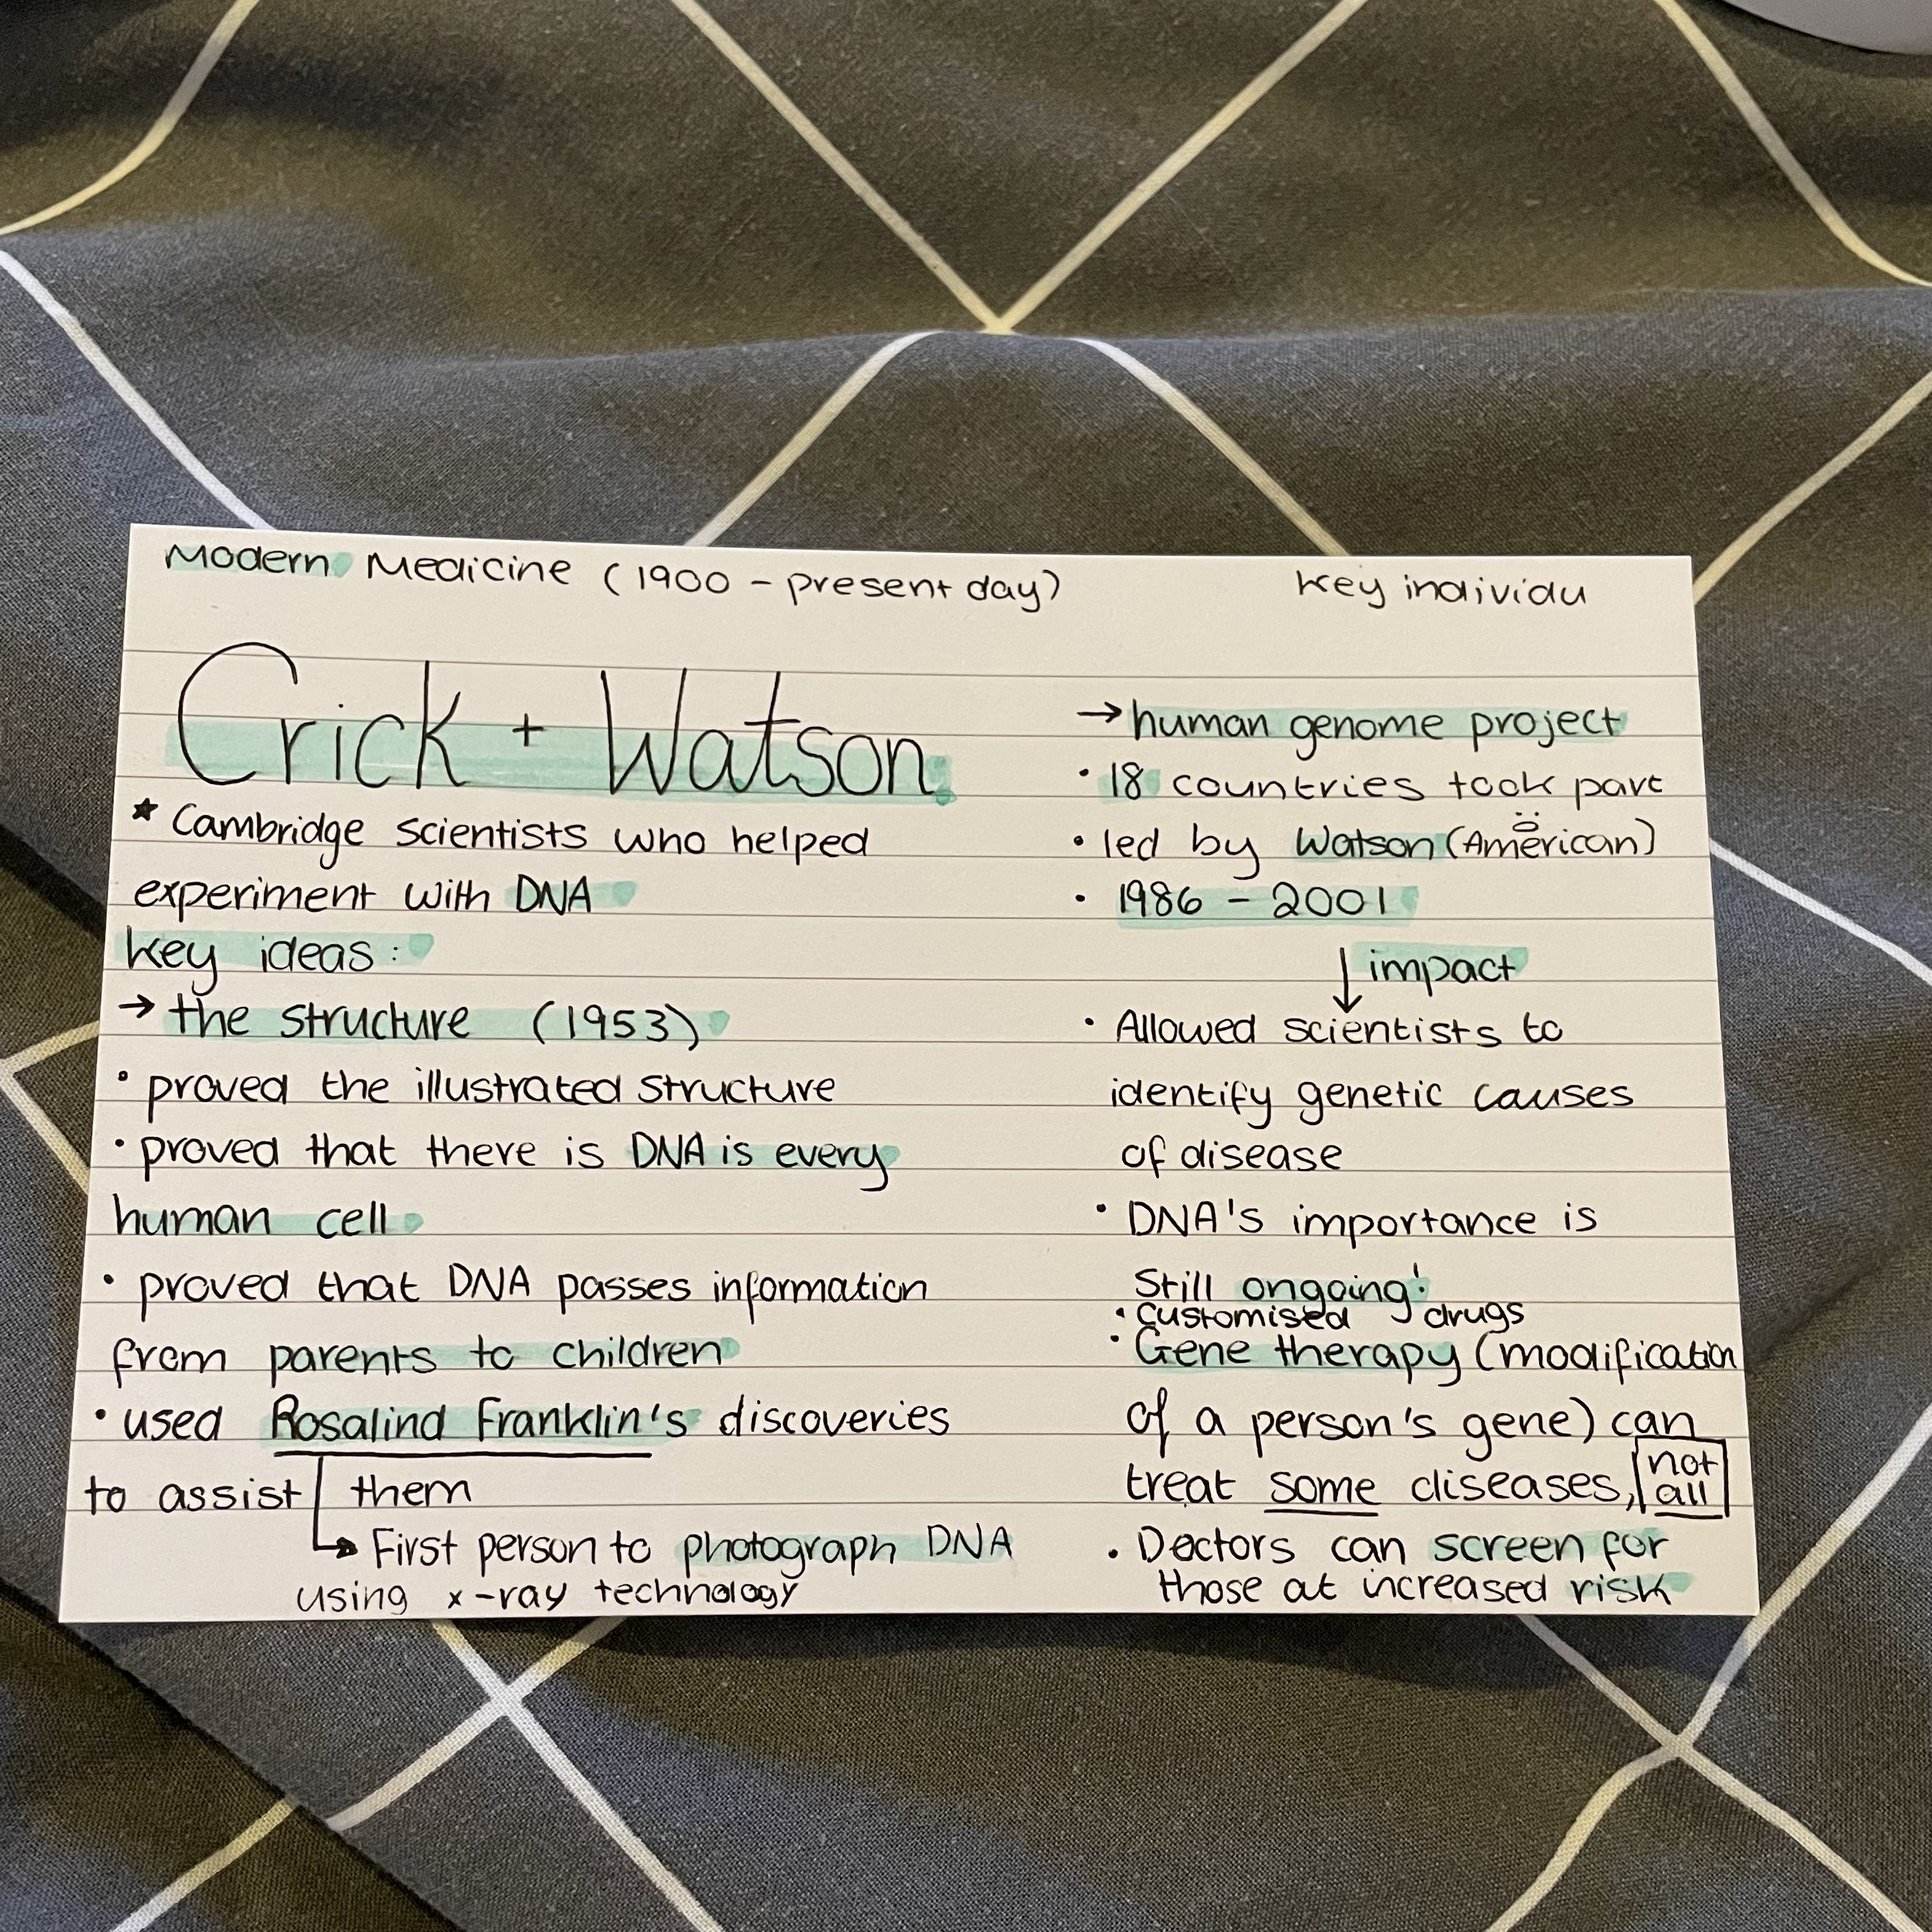 Modern Medicine (1900 - present day)
Key individu
Crick + Watson.
★ Cambridge scientists who helped
experiment with DNA
Key ideas:
→ the structure (1953)
• proved the illustrated structure
• proved that there is DNA is every
human cell
• proved that DNA passes information
from parents to children
• used Rosalind Franklin's discoveries
to assist them
↳ First person to photograph DNA
using x-ray technology
→ human genome project
• 18 countries took part
• led by Watson (American)
• 1986 - 2001
↓ impact
• Allowed scientists to
identify genetic causes
of disease
• DNA's importance is
still ongoing!
• customised drugs
• Gene therapy (modification
of a person's gene) can
treat some diseases, not
all
• Doctors can screen for
those at increased risk